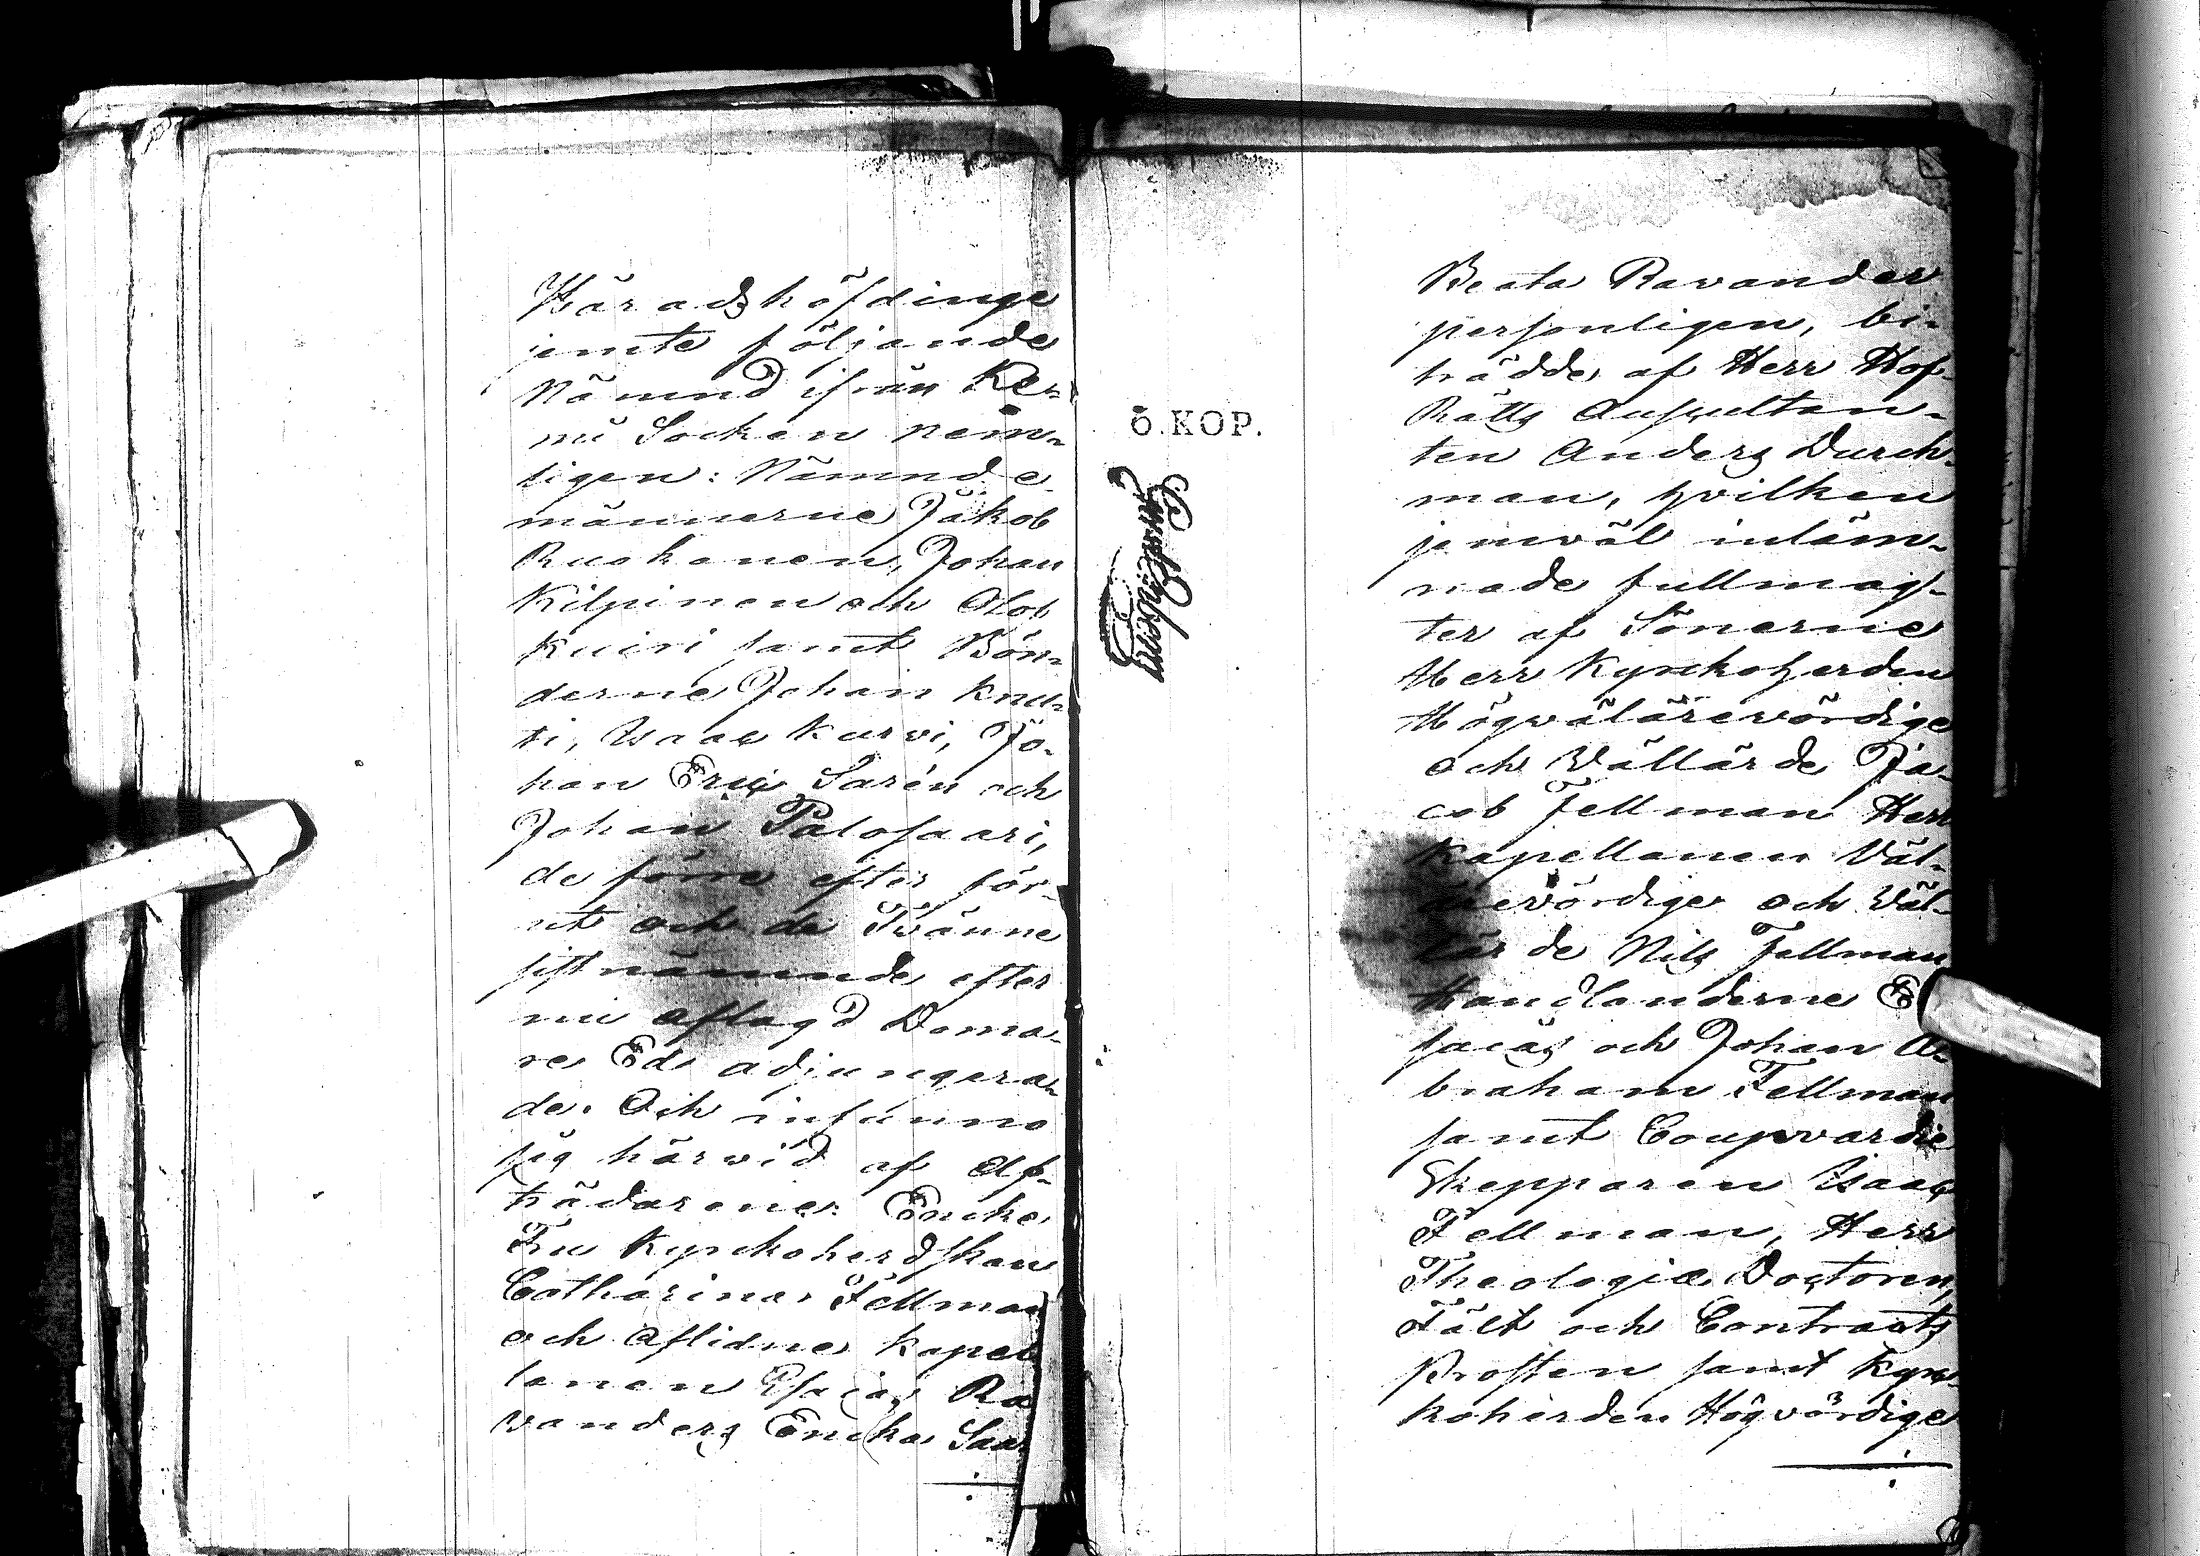 Häradshöfdinge
jemte följande
Nämnd ifrån Ke-
mi Socken nem-
ligen: Nämnde
männerne Jakob
Ruokanen, Johan
Kilpinen och Olof
Kuiri samt Bön-
derne Johan Knu-
ti, Isaac Kurvi, Jo-
han Eric Sarén och
Johan Palosaari,
de förre efter för-
ut och de Twänne
sistnämnde efter
nu aflagd Doma-
re Ed adjungera-
de. Och infunno
sig härwid af Af-
trädarene: Enke
Fru Kyrckoherdskan
Catharina Fellman
och Aflidne Kapel
lanen Esaias Ra
vanders Encka Sara
6. KOP.
Beata Ravander
personligen, bi-
trädde af Herr Hof-
Rätts Auscultan-
ten Anders Durch-
man, hvilken
jemväl inläm-
nade fullmag-
ter af Sönerne
Herr Kyrckoherden
Högvälärevördige
och Vällärde Ja-
cob Fellman Herr
Kapellanen Väl-
ärevördige och Väl-
lärde Nils Fellman
Handlanderne E
saias och Johan A-
braham Fellman
samt Coopvardie
Skepparen Isaac
Fellman, Herr
Theologiæ Doctoren,
Fält och Contracts
Prosten samt Kyrc-
koherden Högvördige